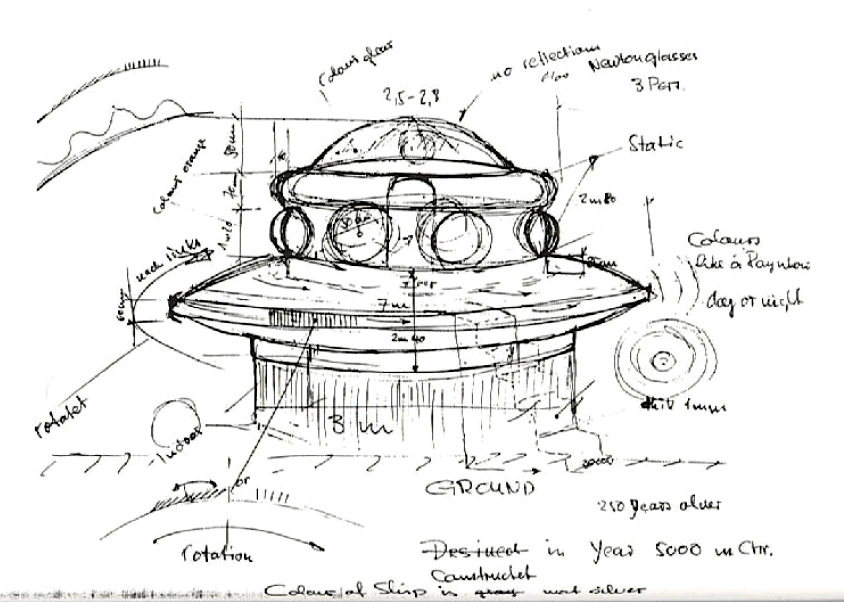 no reflections
Newtonglasses
3 Pers.
2,5-2,8
Static
Colour orange
2m80
nach links
Colours
like a Raynbow
day or night
7m
2m40
60cm
rotatet
Indoor
3 m
or
GROUND
250 years
rotation
Desined in Year 5000 n Chr.
Constructet
Colour of Ship is gray mat silver